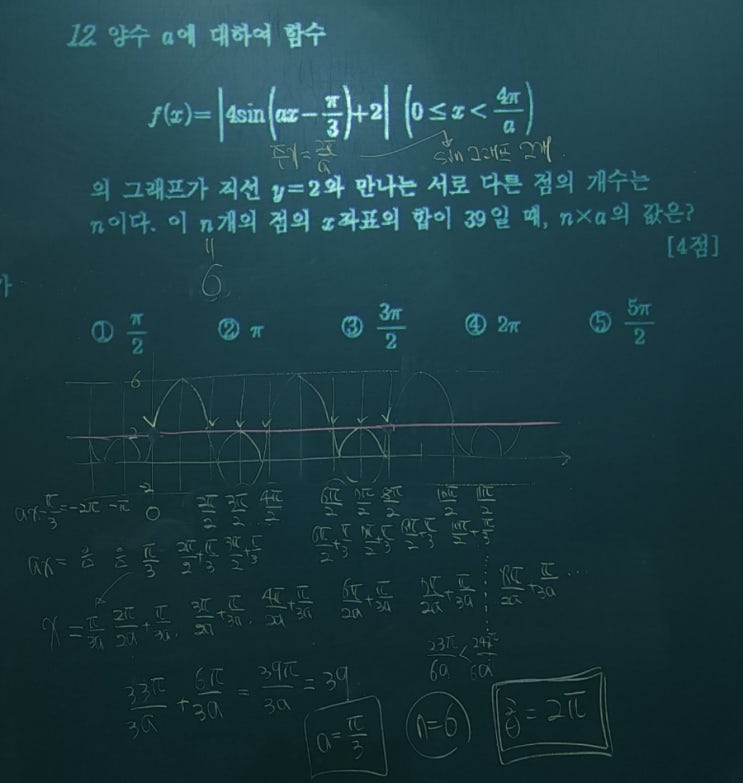 12 양수 a에 대하여 함수
f(x)=|4sin(ax-π/3)+2| (0≤x<4π/a)
주기=2π/a sin 그래프 2개.
의 그래프가 직선 y=2와 만나는 서로 다른 점의 개수는
n이다. 이 n개의 점의 x좌표의 합이 39일 때, n×a의 값은?
[4점]
6
① π/2 ② π ③ 3π/2 ④ 2π ⑤ 5π/2
6
2
-2
ax-π/3=-2π -π 0 2π/2 3π/2 4π/2 6π/2 7π/2 8π/2 10π/2 11π/2
ax= 음 음 π/3 2π/2+π/3 3π/2+π/3
x=π/3a, 2π/2a+π/3a, 3π/2a+π/3a, 4π/2a+π/3a, 6π/2a+π/3a, 7π/2a+π/3a, 8π/2a+π/3a ...
23π/6a < 24π/6a
33π/3a + 6π/3a = 39π/3a = 39
a=π/3 n=6 =2π